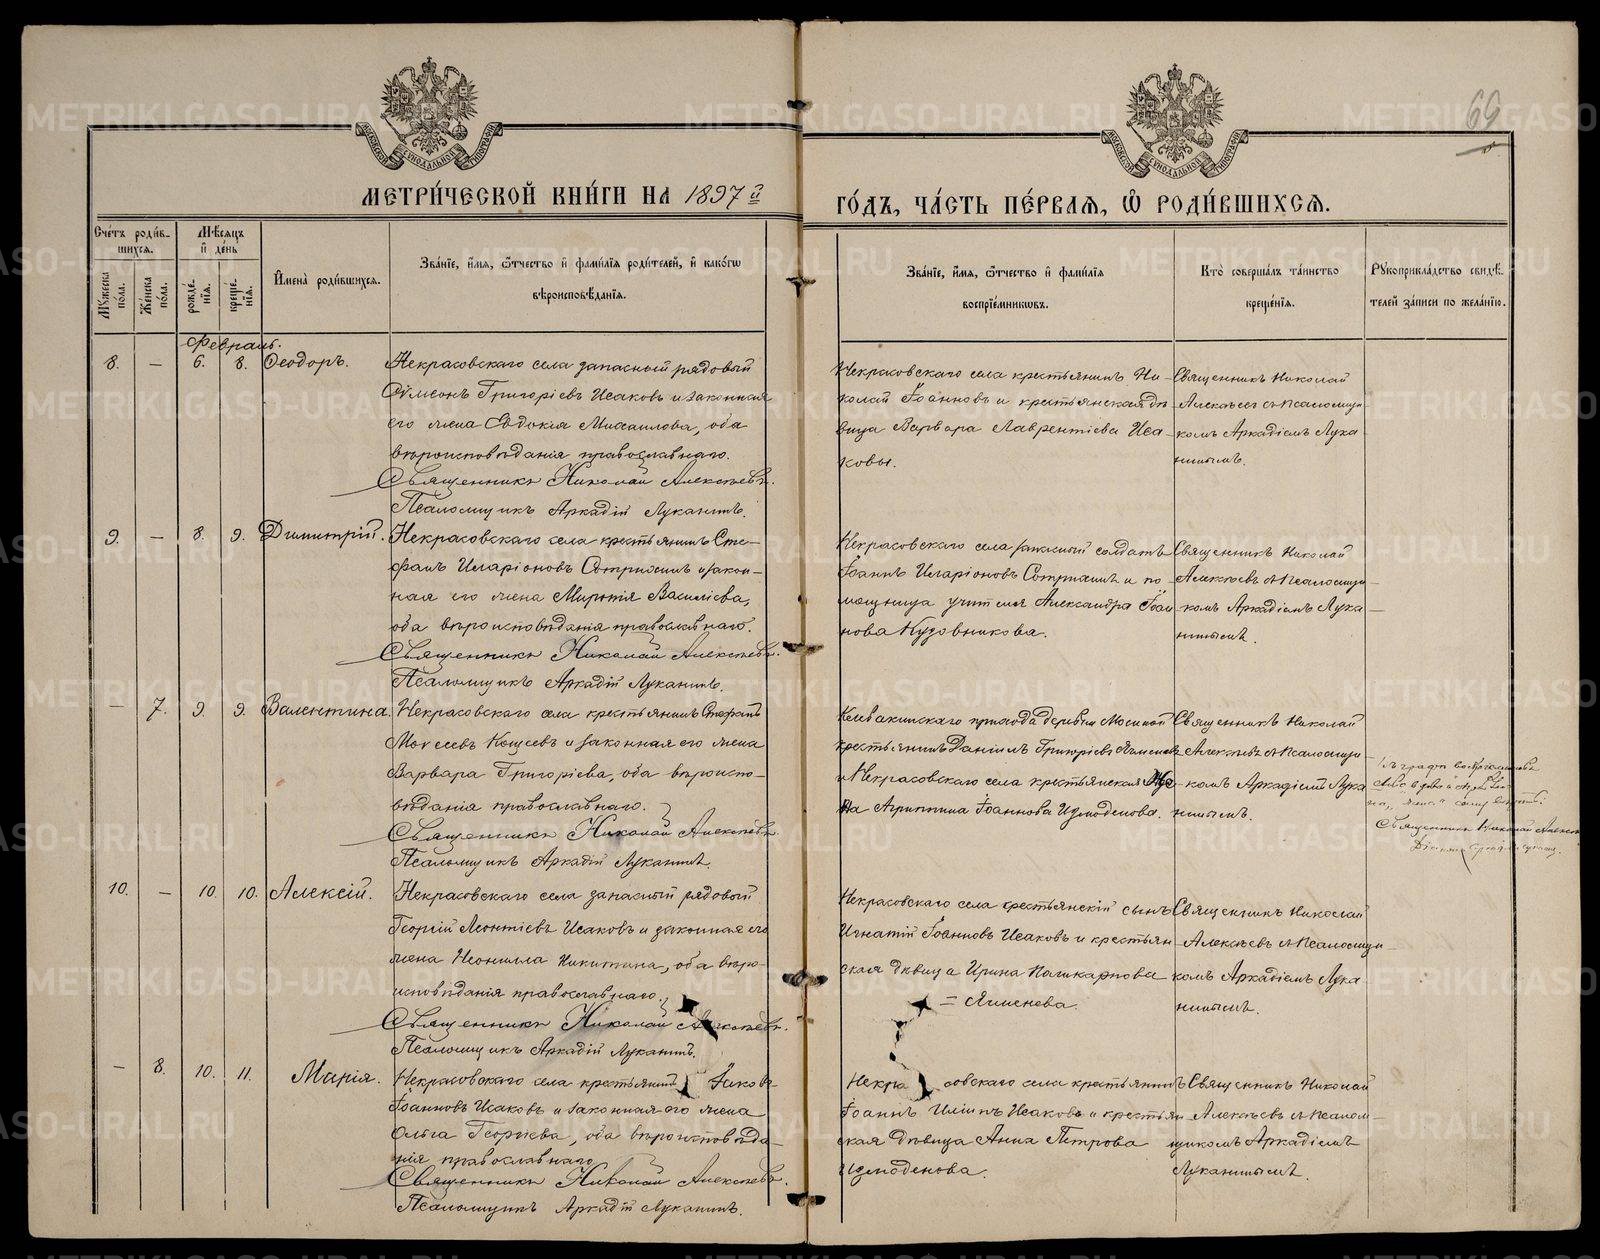 МЕТРИ́ЧЕСКОЙ КНИ́ГИ НА 1897й
ГО́ДЪ, ЧА́СТЬ ПЕ́РВАЯ, Ѡ РОДИ́ВШИХСЯ.
69
Сче́тъ роди́в-
шихся.
Мѣсяцъ
и де́нь
Му́жеска по́ла.
Же́нска по́ла.
рожде́нія.
креще́нія.
Имена̀ роди́вшихся.
Зва́ніе, и́мя, ѻ́тчество и фами́лія роди́телей, и како́гѡ
вѣроисповѣ́данія.
Зва́ніе, и́мя, ѻ́тчество и фами́лія
воспріе́мниковъ.
Кто̀ соверша́лъ та́инство
креще́нія.
Рукоприкла́дство свидѣ́-
телей за́писи по жела́нію.
Февраль.
8. — 6. 8. Ѳеодоръ.
Некрасовскаго села запасный рядовый
Сѵмеонъ Григоріевъ Исаковъ и законная
его жена Евдокія Михаилова, оба
вѣроисповѣданія православнаго.
Священникъ Николай Алексѣевъ.
Псаломщикъ Аркадій Луканинъ.
Некрасовскаго села крестьянинъ Ни-
колай Іоанновъ и крестьянская дѣ-
вица Варвара Лаврентіева Иса-
ковы.
Священникъ Николай
Алексѣевъ съ псаломщи-
комъ Аркадіемъ Лука-
нинымъ.
9. — 8. 9. Димитрій.
Некрасовскаго села крестьянинъ Сте-
фанъ Иларіоновъ и закон-
ная его жена Василіева,
оба вѣроисповѣданія православнаго.
Священникъ Николай Алексѣевъ.
Псаломщикъ Аркадій Луканинъ.
Некрасовскаго села запасный солдатъ
Іоаннъ Иларіоновъ и по-
мощница учителя Александра Іоан-
нова Кузовникова.
Священникъ Николай
Алексѣевъ съ псаломщи-
комъ Аркадіемъ Лука-
нинымъ.
— 7. 9. 9. Валентина.
Некрасовскаго села крестьянинъ Стефанъ
Моѵсеевъ Кощеевъ и законная его жена
Варвара Григоріева, оба вѣроиспо-
вѣданія православнаго.
Священникъ Николай Алексѣевъ.
Псаломщикъ Аркадій Луканинъ.
прихода деревни
крестьянинъ Даніилъ Григоріевъ
и Некрасовскаго села крестьянская же-
на Агриппина Іоаннова Измоденова.
Священникъ Николай
Алексѣевъ съ псаломщи-
комъ Аркадіемъ Лука-
нинымъ.
Священникъ Николай Алексѣ
10. — 10. 10. Алексій.
Некрасовскаго села запасный рядовый
Георгій Леонтіевъ Исаковъ и законная его
жена Неонилла Никитина, оба вѣро-
исповѣданія православнаго.
Священникъ Николай Алексѣевъ.
Псаломщикъ Аркадій Луканинъ.
Некрасовскаго села крестьянскій сынъ
Игнатій Іоанновъ Исаковъ и крестьян-
ская дѣвица Ирина Поликарпова
= Ячменева.
Священникъ Николай
Алексѣевъ съ псаломщи-
комъ Аркадіемъ Лука-
нинымъ.
— 8. 10. 11. Марія.
Некрасовскаго села крестьянинъ Іаковъ
Іоанновъ Исаковъ и законная его жена
Ольга Георгіева, оба вѣроисповѣда-
нія православнаго.
Священникъ Николай Алексѣевъ.
Псаломщикъ Аркадій Луканинъ.
Некрасовскаго села крестьянинъ
Іоаннъ Иліинъ Исаковъ и крестьян-
ская дѣвица Анна Петрова
Измоденова.
Священникъ Николай
Алексѣевъ съ псалом-
щикомъ Аркадіемъ
Луканинымъ.
METRIKI.GASO-URAL.RU